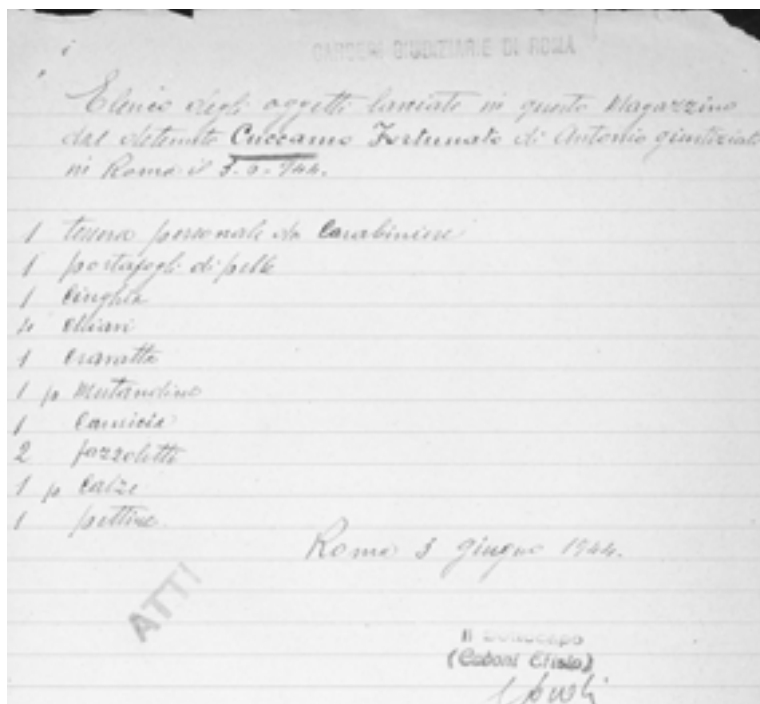 CARCERI GIUDIZIARIE DI ROMA
Elenco degli oggetti lasciati in questo Magazzino
dal detenuto Cuccamo Fortunato di Antonio giustiziato
in Roma il 944.
1 tessera personale da Carabiniere
1 portafogli di pelle
1 Cinghia
1 Cravatta
1 p Mutandine
1 Camicia
2 fazzoletti
1 p Calze
1 pettine
Roma 3 giugno 1944.
ATTI
Il Sottocapo
(Caboni Efisio)